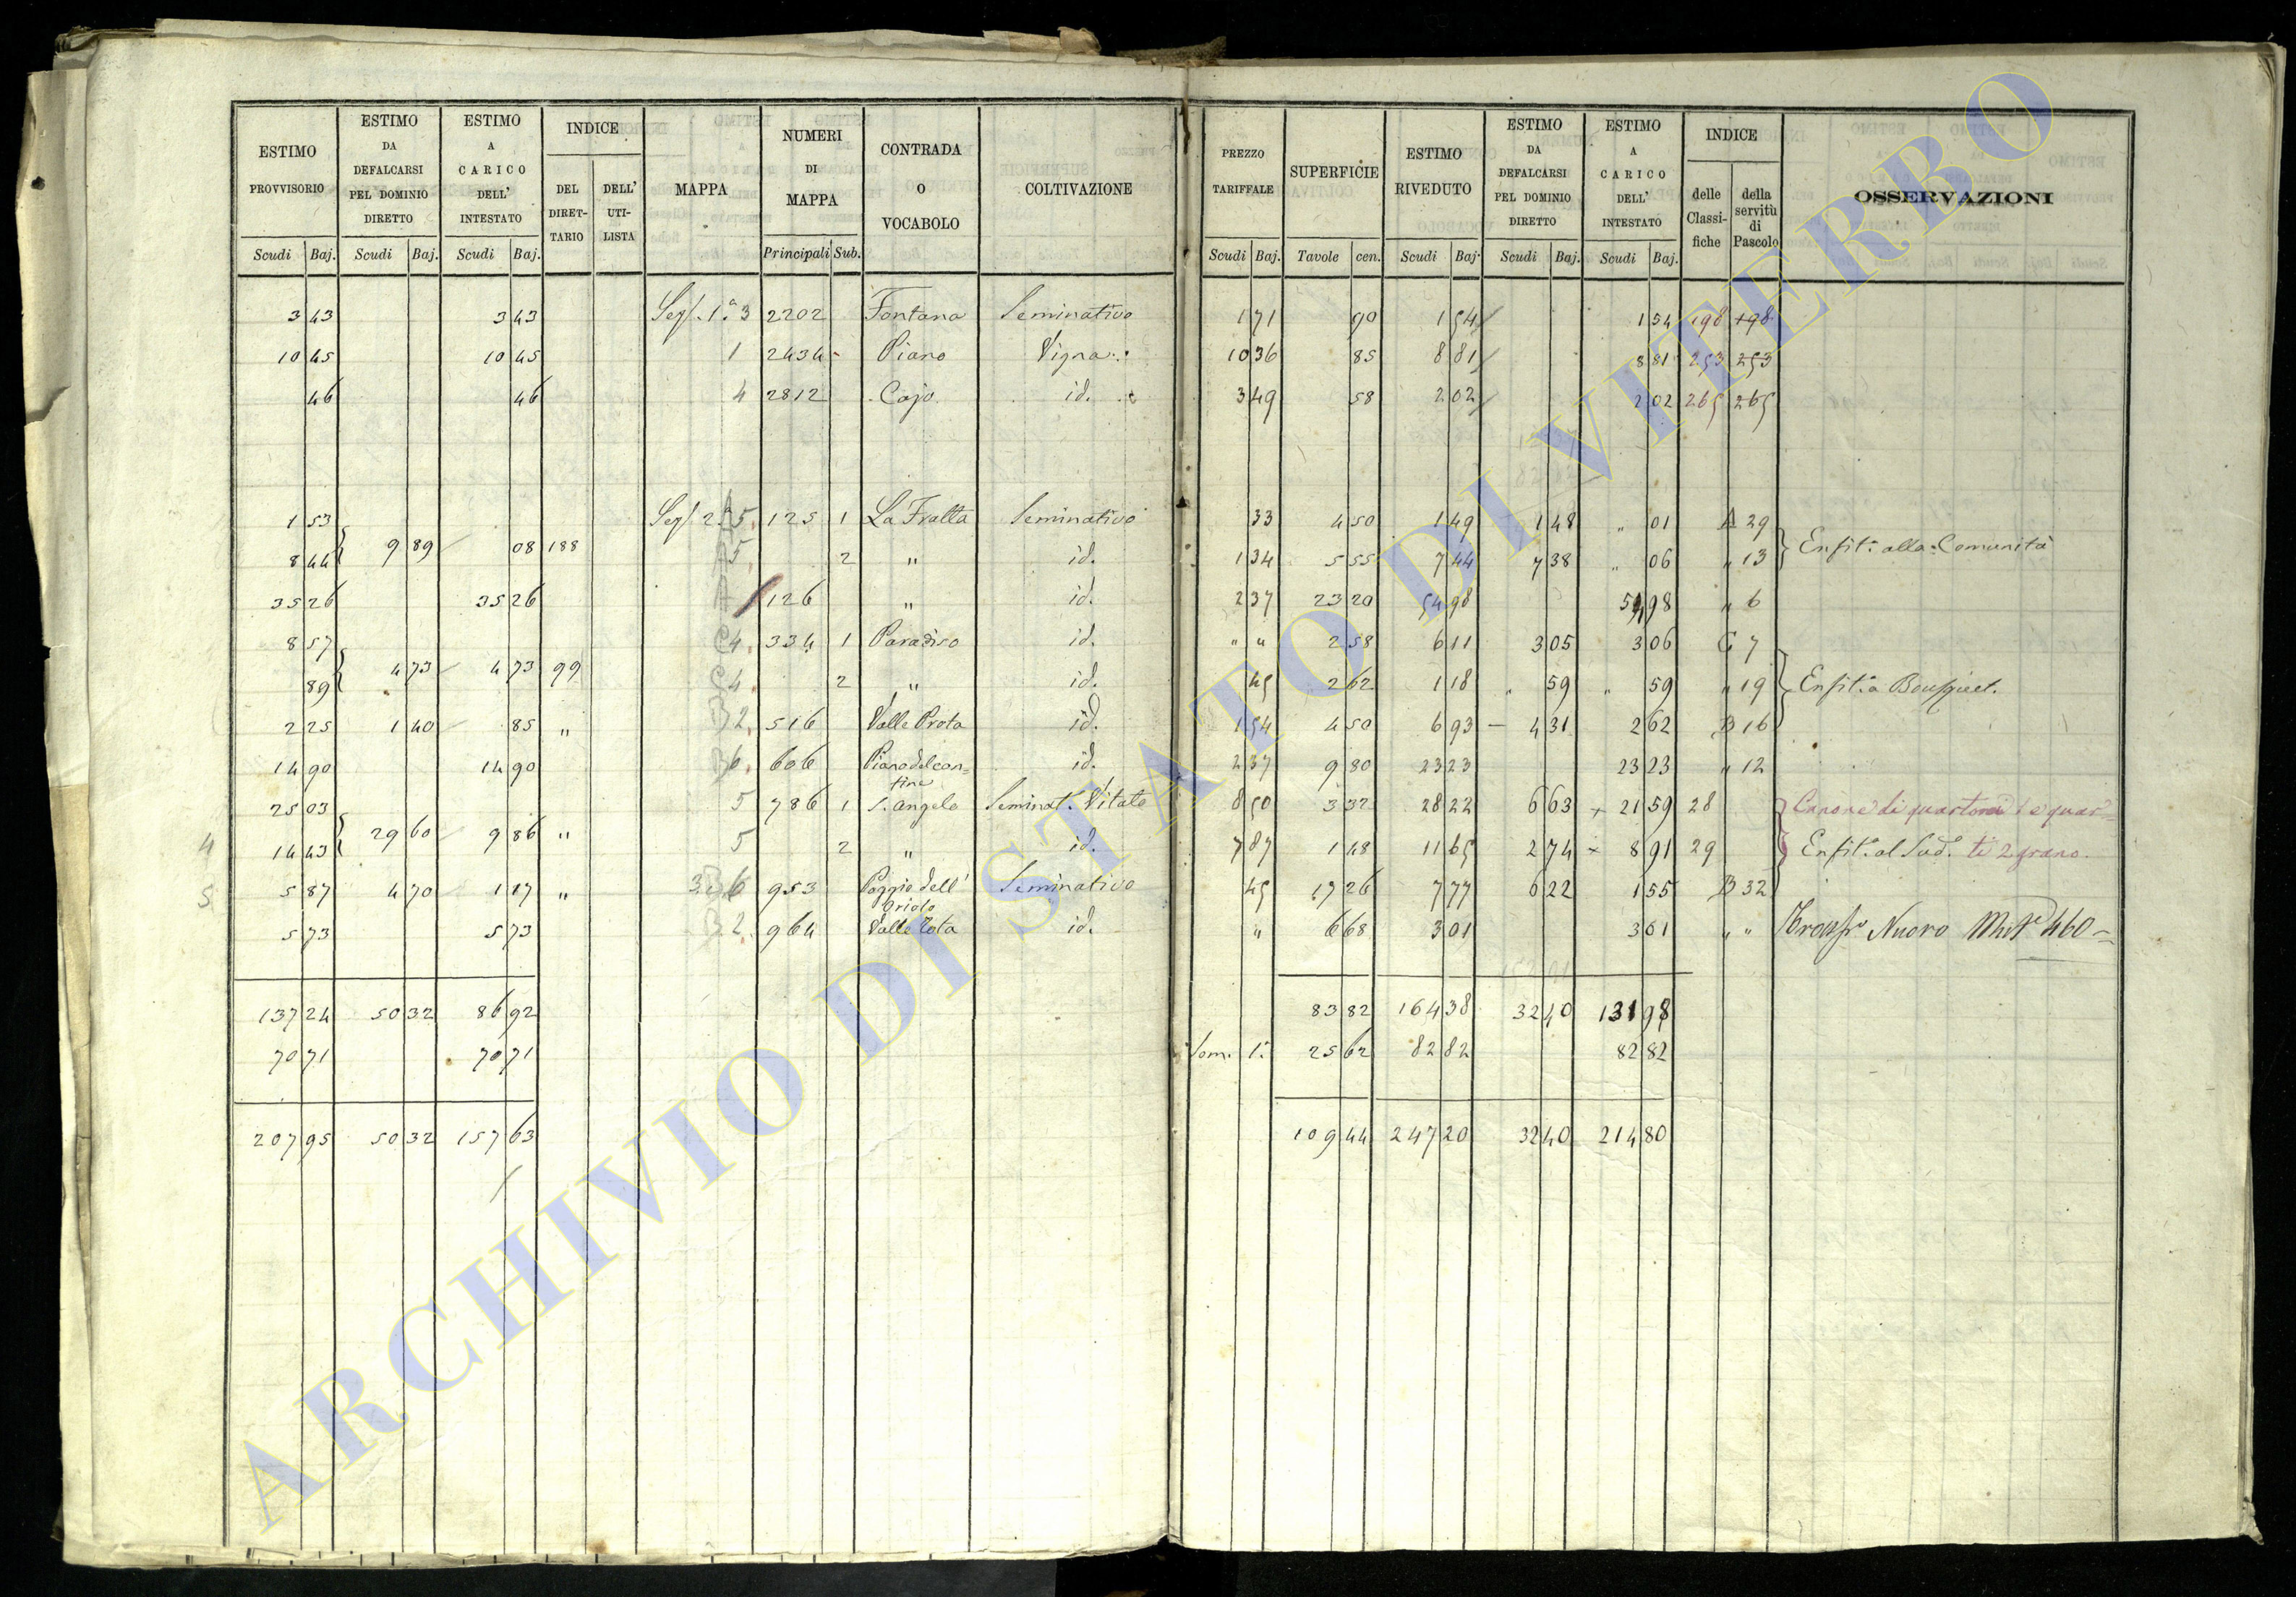 ESTIMO PROVVISORIO | ESTIMO DA DEFALCARSI PEL DOMINIO DIRETTO | ESTIMO A CARICO DELL' INTESTATO | INDICE | MAPPA | NUMERI DI MAPPA | CONTRADA O VOCABOLO | COLTIVAZIONE | PREZZO TARIFFALE | SUPERFICIE | ESTIMO RIVEDUTO | ESTIMO DA DEFALCARSI PEL DOMINIO DIRETTO | ESTIMO A CARICO DELL' INTESTATO | INDICE | OSSERVAZIONI
DEL DIRET-TARIO | DELL' UTI-LISTA | delle Classi-fiche | della servitù di Pascolo
Scudi | Baj. | Scudi | Baj. | Scudi | Baj. | Principali | Sub. | Scudi | Baj. | Tavole | cen. | Scudi | Baj. | Scudi | Baj. | Scudi | Baj.
3 43 | 3 43 | 1ª 3 | 2202 | Fontana | Seminativo | 1 71 | 90 | 1 54 | 1 54 | 198 | 198
10 45 | 10 45 | 1 | 2434 | Piano | Vigna | 10 36 | 85 | 8 81 | 8 81 | 253 | 253
46 | 46 | 4 | 2812 | Cajo | id. | 3 49 | 58 | 2 02 | 2 02 | 265 | 265
1 53 | 2ª A5. | 125 | 1 | La Fratta | Seminativo | 33 | 4 50 | 1 49 | 1 48 | " 01 | A 29
9 89 | 08 | 188 | Enfit.ª alla Comunità
8 44 | A5. | 2 | " | id. | 1 34 | 5 55 | 7 44 | 7 38 | " 06 | " 13
35 26 | 35 26 | A | 126 | " | id. | 2 37 | 23 20 | 54 98 | 54 98 | " 6
8 57 | C4. | 334 | 1 | Paradiso | id. | " " | 2 58 | 6 11 | 3 05 | 3 06 | C 7
4 73 | 4 73 | 99
89 | C4. | 2 | " | id. | 45 | 2 62 | 1 18 | " 59 | " 59 | " 19 | Enfit.ª a Bousquet.
2 25 | 1 40 | 85 | " | B2. | 516 | Valle Rota | id. | 1 54 | 4 50 | 6 93 | 4 31 | 2 62 | B 16
14 90 | 14 90 | B6. | 606 | Piano del can= | id. | 2 37 | 9 80 | 23 23 | 23 23 | " 12
tine
25 03 | 5 | 786 | 1 | S. Angelo | Seminat. Vitato | 8 50 | 3 32 | 28 22 | 6 63 | + 21 59 | 28 | Canone di
4 | 29 60 | 9 86 | "
14 43 | 5 | 2 | " | id. | 7 87 | 1 48 | 11 65 | 2 74 | × 8 91 | 29 | Enfit.ª al Sud.º ti 2 grano.
5 | 5 87 | 4 70 | 1 17 | " | B6 | 953 | Poggio dell' | Seminativo | 45 | 17 26 | 7 77 | 6 22 | 1 55 | B 32
Oriolo
5 73 | 5 73 | B2. | 964 | Valle Rota | id. | " | 6 68 | 3 01 | 3 01 | " " | Nuovo 460
137 24 | 50 32 | 86 92 | 83 82 | 164 38 | 32 40 | 131 98
70 71 | 70 71 | Som. 1ª | 25 62 | 82 82 | 82 82
207 95 | 50 32 | 157 63 | 109 44 | 247 20 | 32 40 | 214 80
ARCHIVIO DI STATO DI VITERBO